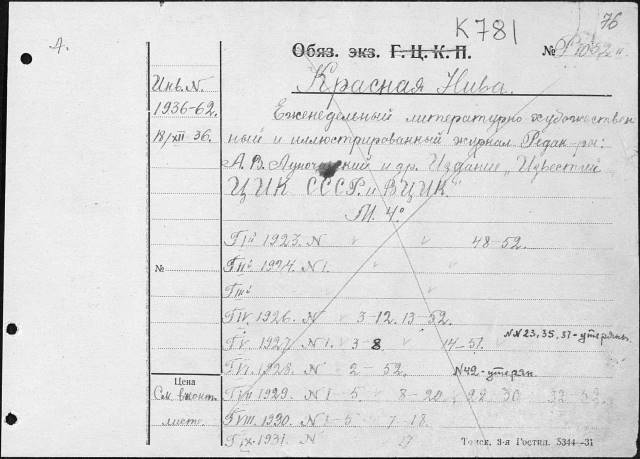 76
К781
А.
Обяз. экз. Г.Ц.К.П. №
Красная Нива.
Инв. N.
1936-62.
18/XII 36.
Еженедельный литературно-художествен-
ный и иллюстрированный журнал. Редак-ры:
А. В. Луначарский и др. Издание „Известий
ЦИК СССР. и ВЦИК."
М. 4°
Г I й 1923. N 48-52.
№ Г II й 1924. N 1.
Г III й
Г IV. 1926. N 3-12. 13-52.
Г V. 1927. N 1. 3-8 14-51. N N 23, 35, 37-утерян.
Г VI. 1928. N 2-52. N 42-утерян.
Цена Г VII 1929. N 1-5 8-20 22 30 32 52.
См. в конт. Г VIII. 1930. N 1-5 7-18.
листе. Г IX. 1931. N 17
Томск, 3-я Гостип. 5344-31